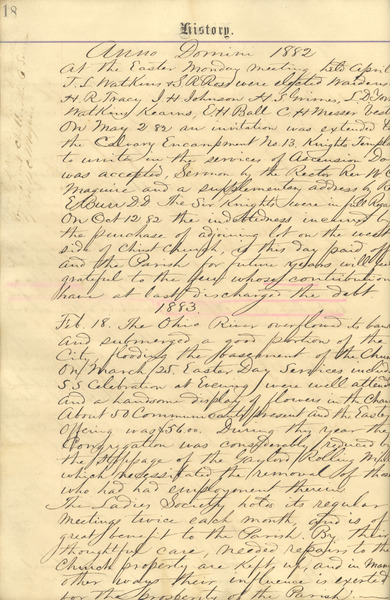 18
History.
Anno Domini 1882
At the Easter Monday meeting held April
T. L. Watkins & S R Ross were elected Wardens
H. R. Tracy, J H Johnson H S Grimes, L D
Watkins Kearns, E H Ball C H Messer Vest
On May 2 82 an invitation was extended
the Calvary Encampment No 13, Knights Templ
to unite in the services of Ascension Da
was accepted, Sermon by the Rector Rev W C
Maguire and a supplementary address by Re
E Burr D D The Sir Knights were in full Rega
On Oct 12 82 the indebtedness incurred
the purchase of adjoining lot on the west
side of Christ Church, is this day paid off
and the Parish for future years will be
grateful to the few whose contribution
have at last discharged the debt
1883
Feb. 18. The Ohio River overflowed its ban
and submerged a good portion of the
City, flooding the basement of the Chur
On March 25. Easter Day Services includ
S S Celebration at Evening were well attend
and a handsome display of flowers in the Chan
About 50 Communicants present and the Easter
Offering was $56.00. During the year the
Congregation was considerably reduced
the stoppage of the Gaylord Rolling Mill
which necessitated the removal of thos
who had had employment therein
The Ladies Society holds its regular
Meetings twice each month, and is of
great benefit to the Parish. By their
thoughtful care, needed repairs to the
Church property are kept up, and in man
other ways their influence is exerted
for the prosperity of the Parish.